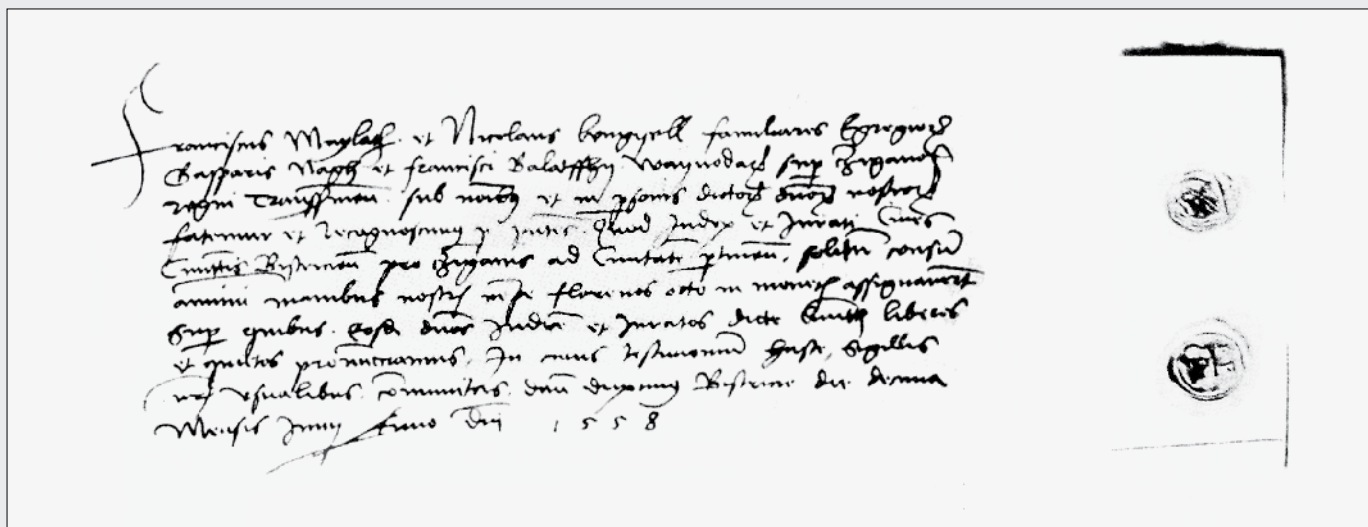 Franciscus Maylath et Nicolaus familiares Egregiorum
Gasparis Nagh et Francisci Balatffhy Waywodarum super Cziganos
regni Transsilvan sub nominibus et in personis dictorum dominorum nostrorum
fatemur et recognoscimus per presentes Quod Judex et Jurati Cives
Civitatis Bistricien pro Cziganis ad Civitatem pertinen solitum censum
manibus nostris florenos octo in moneta assignaverunt
Super quibus Eosdem dominos Judicem et Juratos dicte Civitatis liberos
et quittos pronuncciamus In cuius testimonium haste Sigillis
nostris usualibus communitas Bistricie die decima
Mensis Junii Anno Dni 1558